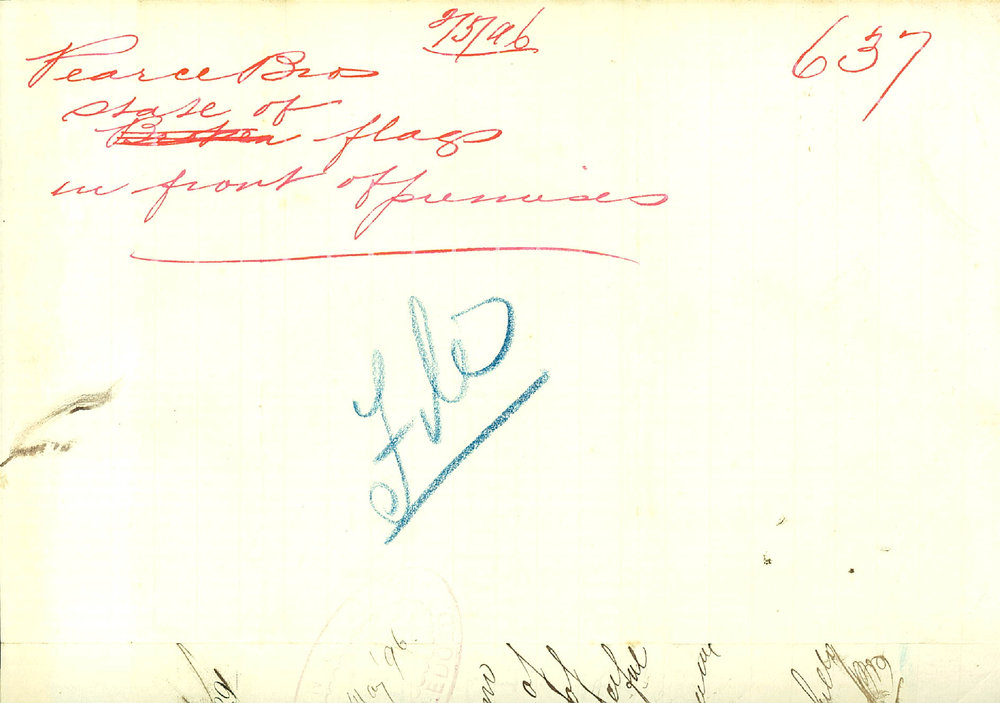 2/5/96
637
Pearce Bros
state of
Broken flags
in front of premises
File
May '96.